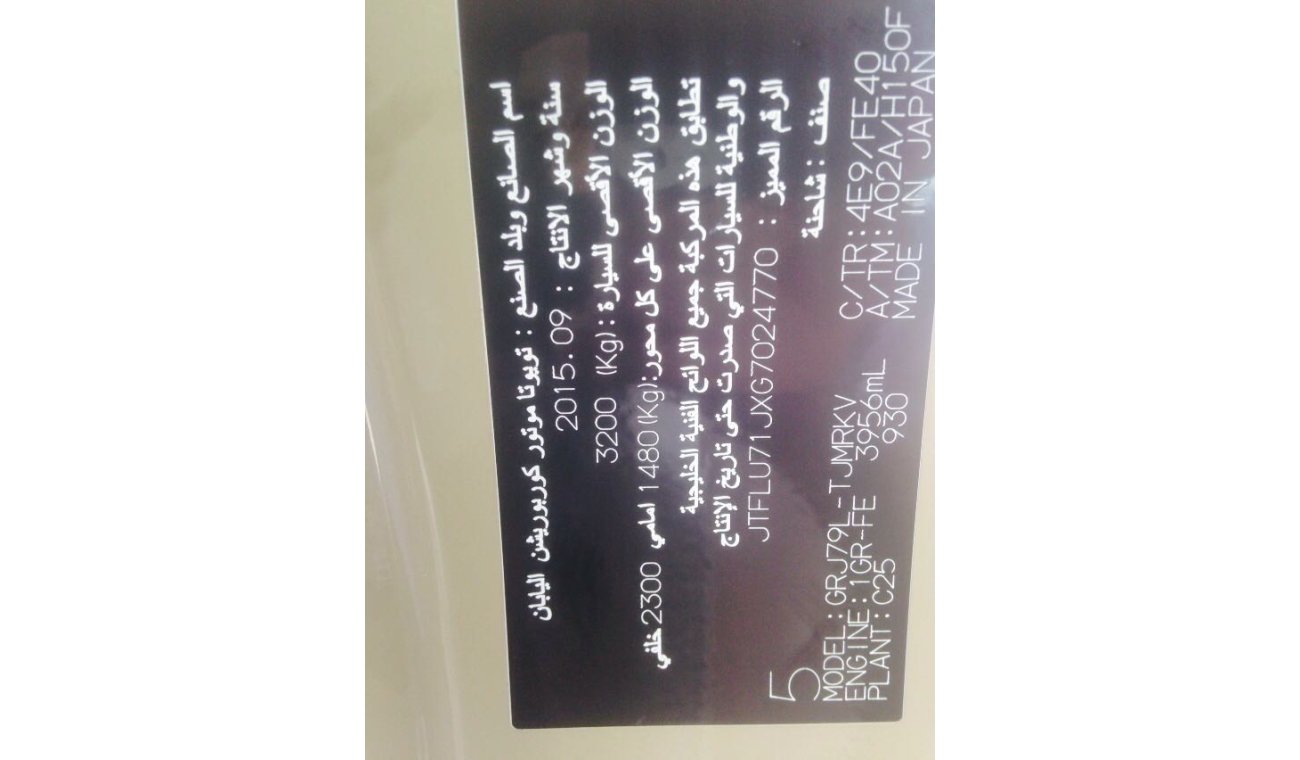 اسم الصانع وبلد الصنع : تويوتا موتور كوربوريشن اليابان
سنة وشهر الانتاج : 2015.09
الوزن الأقصى للسيارة : (Kg) 3200
الوزن الأقصى على كل محور:(Kg)1480 امامي 2300 خلفي
تطابق هذه المركبة جميع اللوائح الفنية الخليجية
والوطنية للسيارات التي صدرت حتى تاريخ الإنتاج
الرقم المميز : JTFLU71JXG7024770
صنف : شاحنة
5
MODEL:GRJ79L-TJMRKV C/TR:4E9/FE40
ENGINE:1GR-FE 3956mL A/TM:A02A/H150F
PLANT:C25 930 MADE IN JAPAN